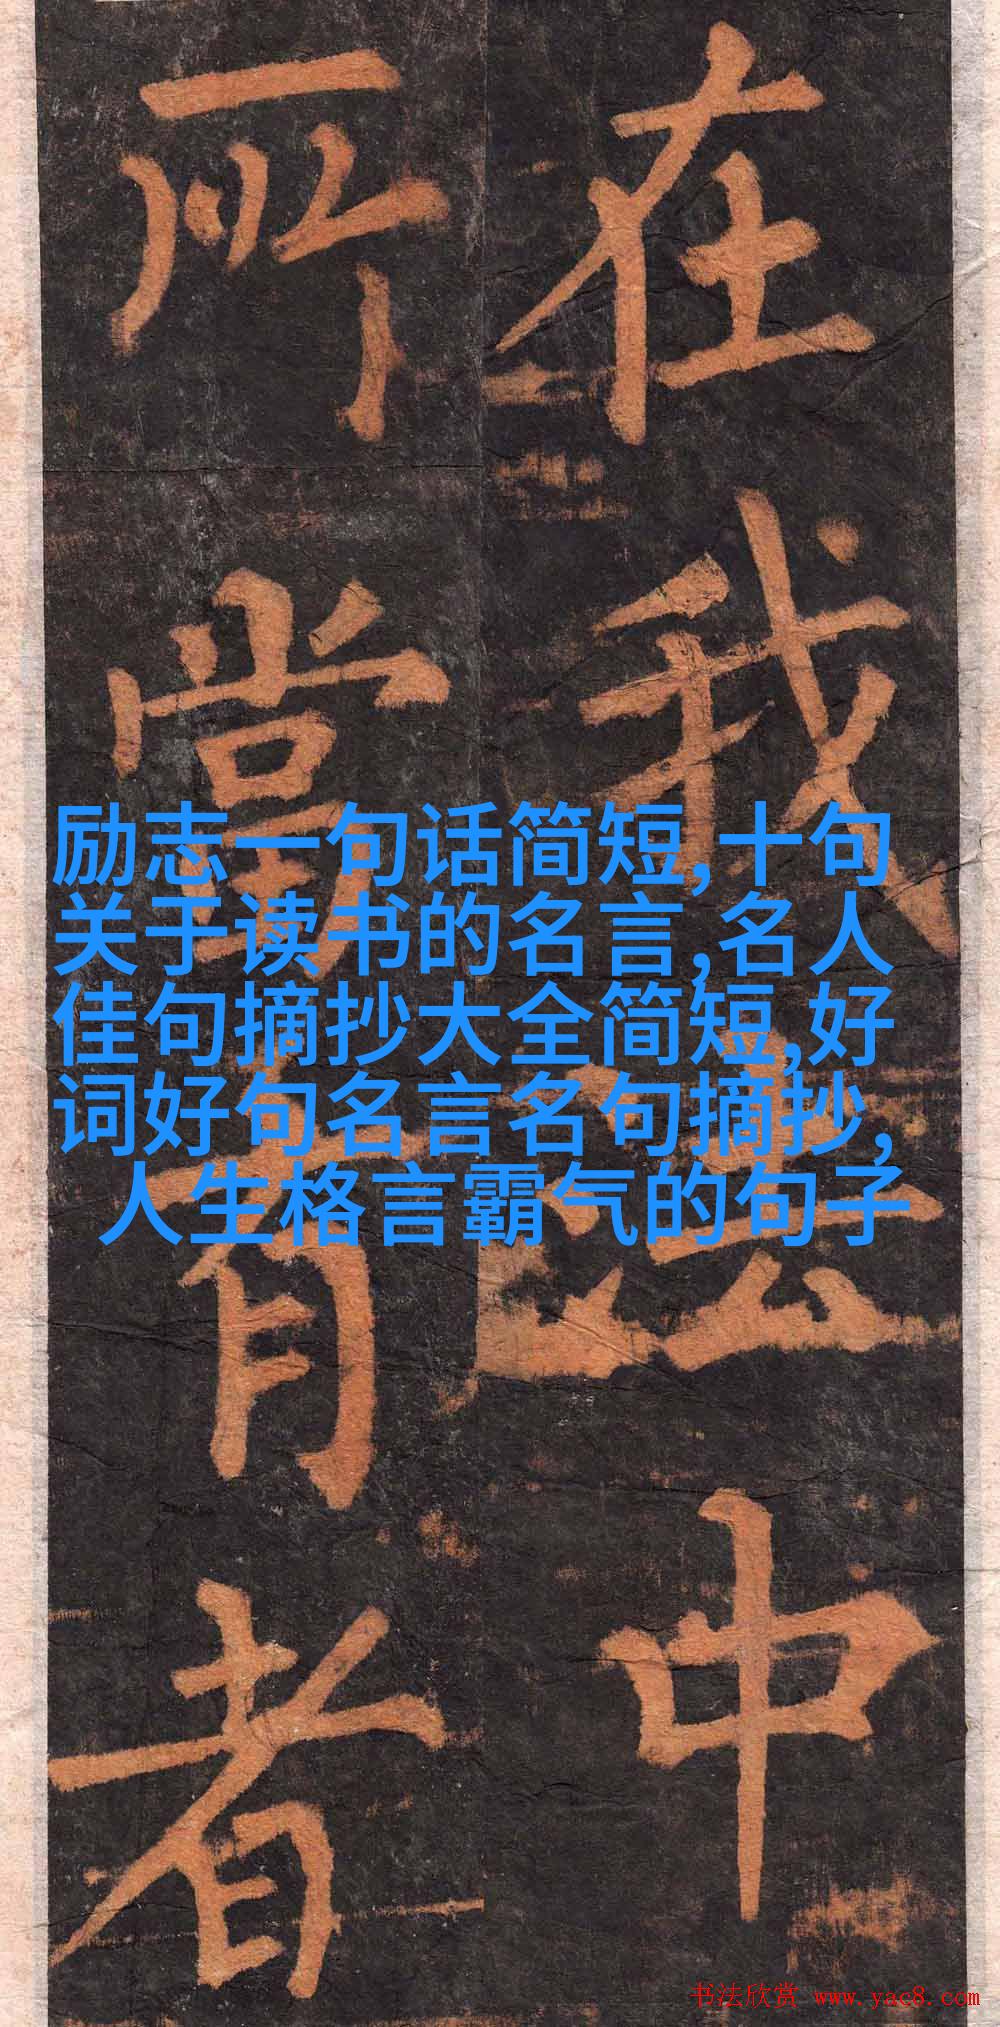 在我法中
所當有者
励志一句话简短,十句
关于读书的名言,名人
佳句摘抄大全简短,好
词好句名言名句摘抄,
人生格言霸气的句子
书法欣赏 www.yac8.com